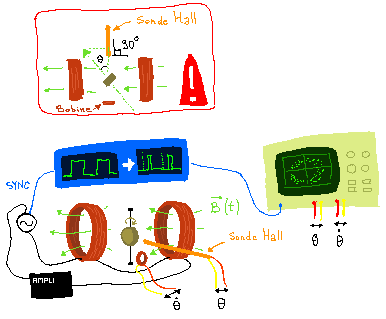 Sonde Hall
30°
θ
Bobine
SYNC
B(t)
Sonde Hall
AMPLI
θ̇
θ
θ
θ̇